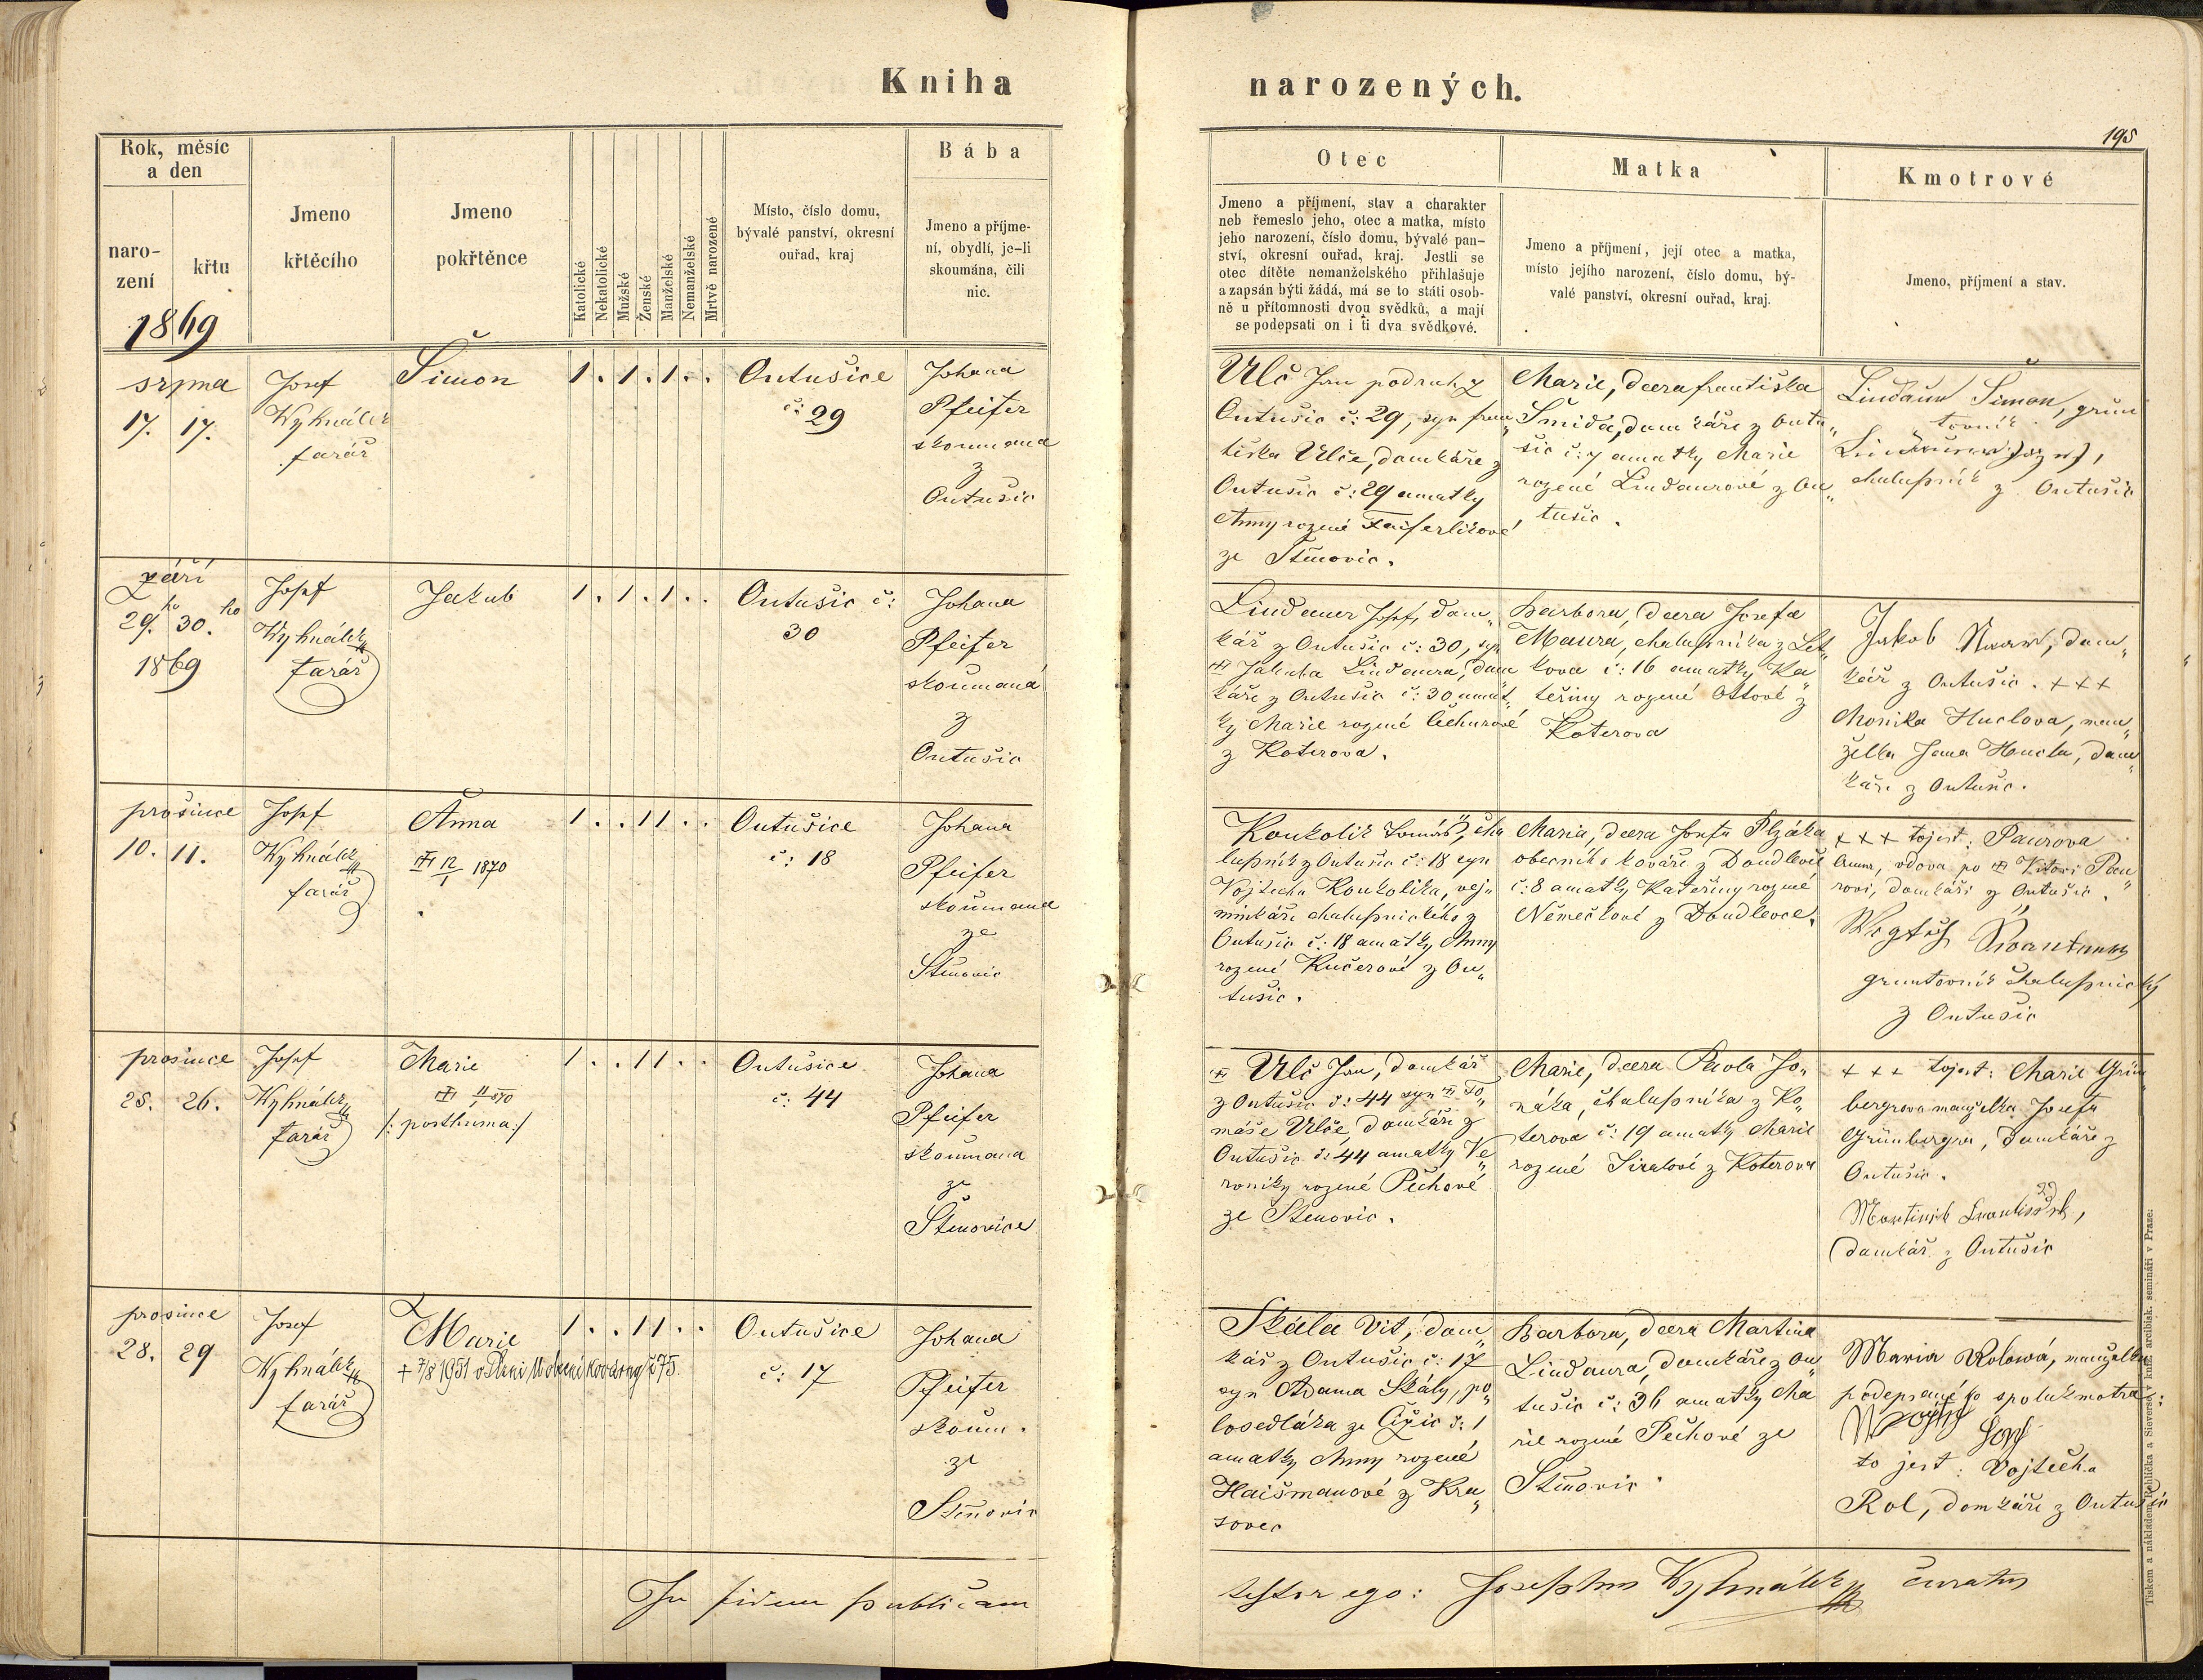 Kniha narozených.
195
Rok, měsíc
a den
naro-
zení
křtu
1869
Jmeno
křtěcího
Jmeno
pokřtěnce
Katolické
Nekatolické
Mužské
Ženské
Manželské
Nemanželské
Mrtvě narozené
Místo, číslo domu,
bývalé panství, okresní
ouřad, kraj
Bába
Jmeno a příjme-
ní, obydlí, je-li
skoumána, čili
nic.
Otec
Jmeno a příjmení, stav a charakter
neb řemeslo jeho, otec a matka, místo
jeho narození, číslo domu, bývalé pan-
ství, okresní ouřad, kraj. Jestli se
otec dítěte nemanželského přihlašuje
a zapsán býti žádá, má se to státi osob-
ně u přítomnosti dvou svědků, a mají
se podepsati on i ti dva svědkové.
Matka
Jmeno a příjmení, její otec a matka,
místo jejího narození, číslo domu, bý-
valé panství, okresní ouřad, kraj.
Kmotrové
Jmeno, příjmení a stav.
srpna
17. 17.
Josef
Wyhnálek
farář
Šimon
1 . 1 . 1 . .
Outušice
č: 29
Johana
Pfeifer
skoumana
z
Outušic
Ulč Jan podruh z
Outušic č: 29, syn fran„
tiška Ulče, domkáře z
Outušic č: 29 a matky
Anny rozené Faiferlikové
ze Štěnovic.
Marie, dcera františka
Šmida, domkáře z Outu„
šic č: 7 a matky Marie
rozené Lindaurové z Ou„
tušic.
Lindaur Šimon, grun
tovník
chalupník z Outušic
září
29.ho 30.ho
1869
Josef
Wyhnálek
farář
Jakub
1 . 1 . 1 . .
Outušic č:
30
Johana
Pfeifer
skoumaná
z
Outušic
Lindauer Josef, dom„
kář z Outušic č: 30, syn
Jakuba Lindaura, dom
káře z Outušic č: 30 a mat„
ky Marie rozené Čechurové
z Koterova.
Barbora, dcera Josefa
Maura, chalupníka z Let„
kova č: 16 a matky Ka„
teřiny rozené Ottové z
Koterova
Jakob, dom„
kář z Outušic. +++
Monika Huclova, man„
želka Jana Hucla, dom„
káře z Outušic.
prosince
10. 11.
Josef
Wyhnálek
farář
Anna
12/1 1870
1 . . 1 1 . .
Outušice
č: 18
Johana
Pfeifer
skoumana
ze
Štěnovic
Koukolik Tomáš, cha
lupník z Outušic č: 18 syn
Vojtecha Koukolika, vej„
minkáře chalupnického z
Outušic č: 18 a matky Anny
rozené Kučerové z Ou„
tušic.
Maria, dcera Josefa Plzáka
obecního kováře z Doudlevic
č: 8 a matky Kateřiny rozené
Němečkové z Doudlevce.
+++ tojest: Paurova
Anna, vdova po Vítovi Pau„
rovi, domkáři z Outušic.
gruntovník chalupnický
z Outušic
prosince
25. 26.
Josef
Wyhnálek
farář
Marie
/: posthuma :/
1 . . 1 1 . .
Outušice
č: 44
Johana
Pfeifer
skoumana
ze
Štenovice
Ulč Jan, domkář
z Outušic č: 44 syn To„
máše Ulče, domkáře z
Outušic č: 44 a matky Ve„
roniky rozené Pěchové
ze Stenovic.
Marie, dcera Pavla Jo„
náka, chalupníka z Ko„
terova č: 19 a matky Marie
rozené z Koterova
+++ tojest: Marie Grün
bergrova manželka Josefa
Grünbergra, domkáře z
Outušic.
Martinek František,
domkář z Outušic
prosince
28. 29
Josef
Wyhnálek
farář
Marie
+ 7/8 1951 v Plzni
1 . . 1 1 . .
Outušice
č: 17
Johana
Pfeifer
skoum.
ze
Štěnovic
Skála Vit, dom„
kář z Outušic č: 17
syn Adama Skály, po„
losedláka ze Čižic č: 1
a matky Anny rozené
Haišmanové z Kra„
sovec
Barbora, dcera Martina
Lindaura, domkáře z Ou„
tušic č: 36 a matky Ma
rie rozené Pechové ze
Štěnovic.
Maria Rolowá, manželka
podepsaného spolukmotra:
to jest: Vojtěcha
Rol, domkáře z Outušic
In fidem publicam
testor ego: Josephus Wyhnálek curatus
Tiskem a nákladem Rohlíčka a Sieversa v kníž. arcibisk. semináři v Praze: